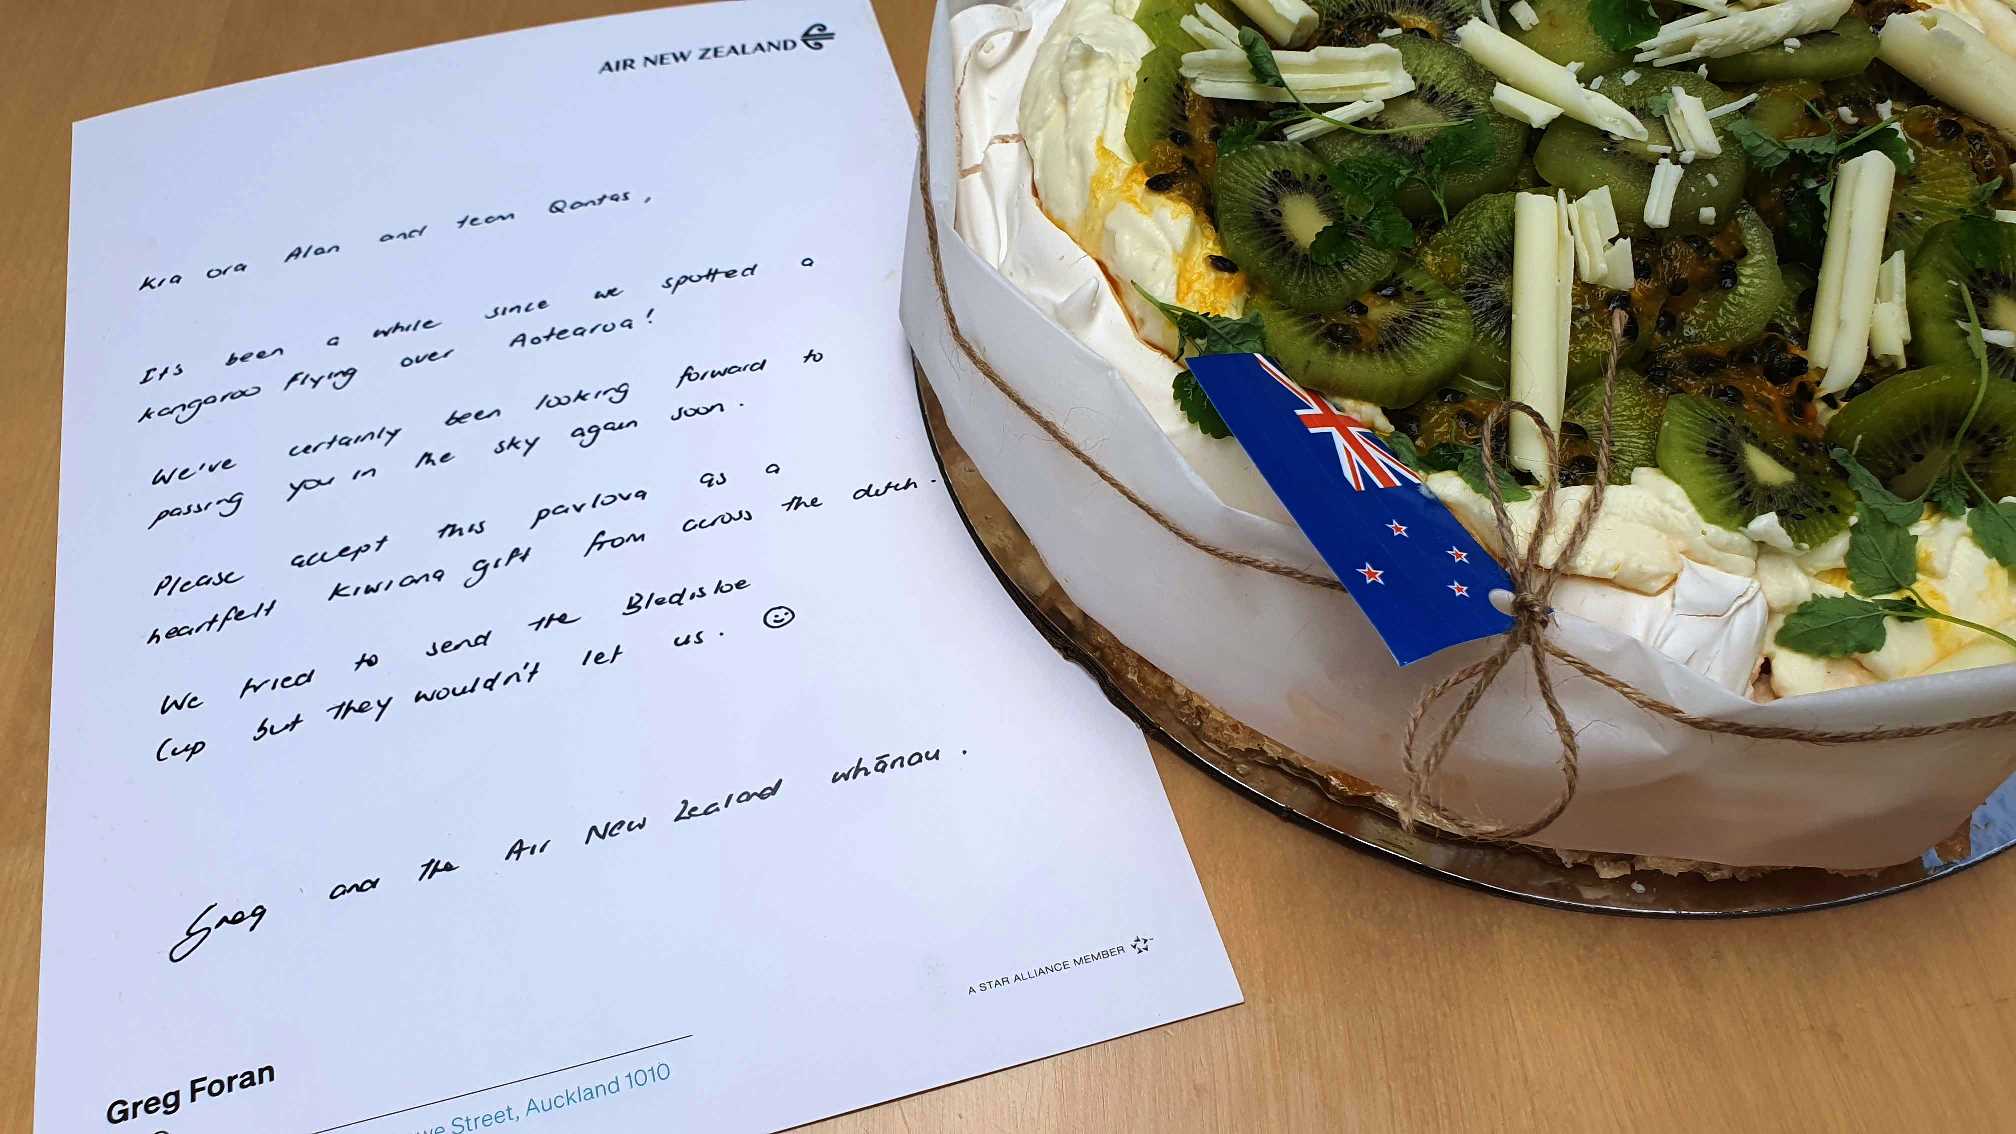 AIR NEW ZEALAND
Kia ora Alan and team Qantas,
It's been a while since we spotted a
kangaroo flying over Aotearoa!
We've certainly been looking forward to
passing you in the sky again soon.
Please accept this pavlova as a
heartfelt kiwiana gift from across the ditch.
We tried to send the Bledisloe
Cup but they wouldn't let us. ☺
Greg and the Air New Zealand whānau.
A STAR ALLIANCE MEMBER
Greg Foran
Street, Auckland 1010